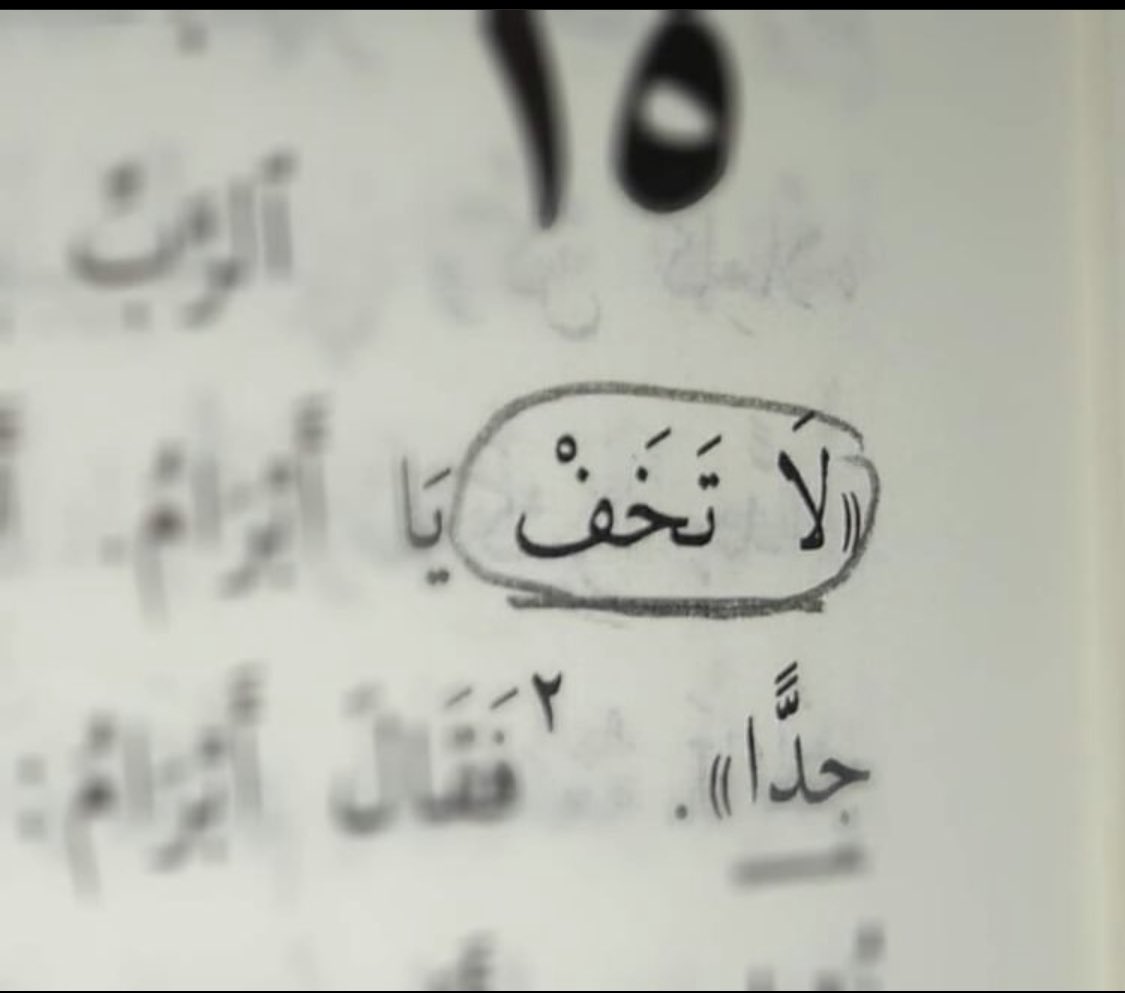 ١٥
ٱلرَّبِّ
«لَا تَخَفْ يَا أَبْرَامُ.
جِدًّا». ٢ فَقَالَ أَبْرَامُ: